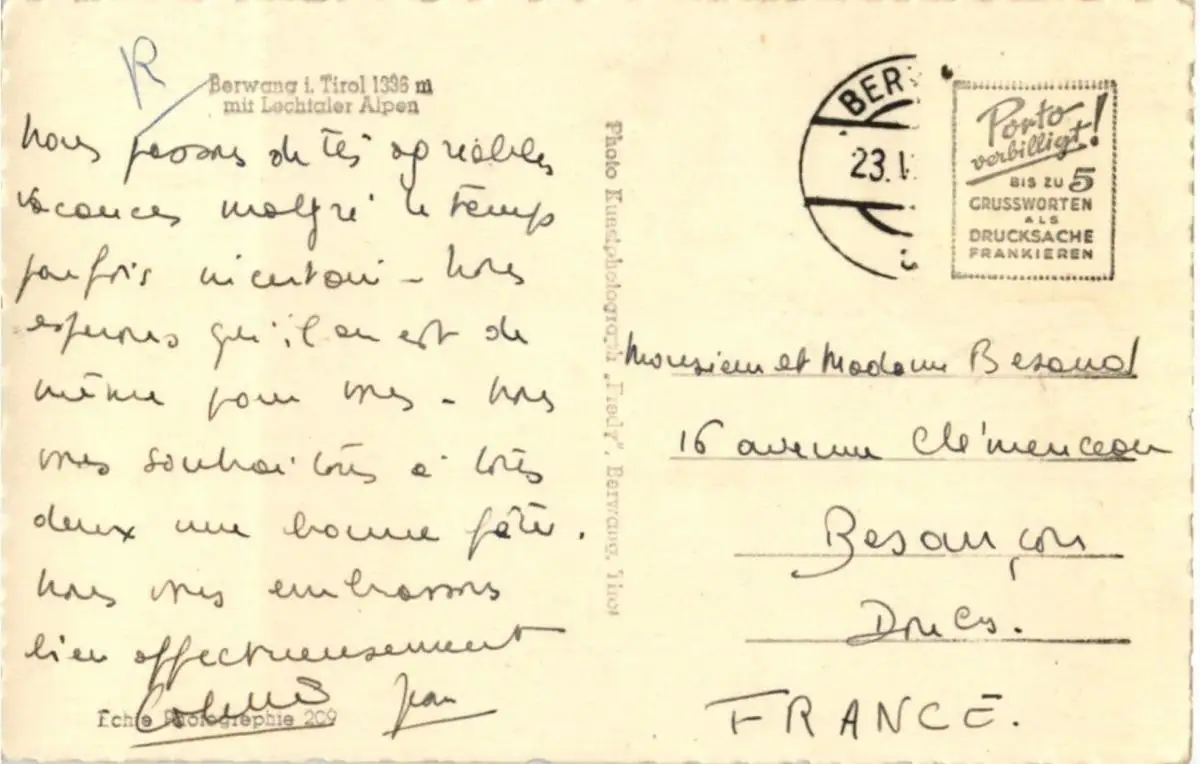 R
Berwang i. Tirol 1336 m
mit Lechtaler Alpen
Nous passons de très agréables
vacances malgré le temps
parfois incertain - Nous
espérons qu'il en est de
même pour vous - Nous
vous souhaitons à tous
deux une bonne fête.
Nous vous embrassons
bien affectueusement
Jean
Echte Photographie 209
Photo Kunstphotograph „Fredy", Berwang, Tirol
BER
23.
Porto
verbilligt!
BIS ZU 5
GRUSSWORTEN
ALS
DRUCKSACHE
FRANKIEREN
Monsieur et Madame
16 avenue Clémenceau
Besançon
Doubs.
FRANCE.